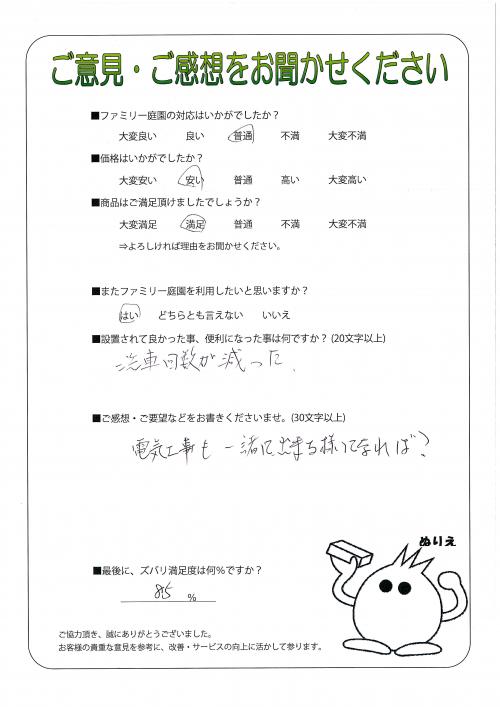 ご意見・ご感想をお聞かせください
■ファミリー庭園の対応はいかがでしたか？
大変良い 良い 普通 不満 大変不満
■価格はいかがでしたか？
大変安い 安い 普通 高い 大変高い
■商品はご満足頂けましたでしょうか？
大変満足 満足 普通 不満 大変不満
⇒よろしければ理由をお聞かせください。
■またファミリー庭園を利用したいと思いますか？
はい どちらとも言えない いいえ
■設置されて良かった事、便利になった事は何ですか？(20文字以上)
洗車回数が減った、
■ご感想・ご要望などをお書きくださいませ。(30文字以上)
電気工事も一緒にできる様になれば？
ぬりえ
■最後に、ズバリ満足度は何%ですか？
85 %
ご協力頂き、誠にありがとうございました。
お客様の貴重な意見を参考に、改善・サービスの向上に活かして参ります。